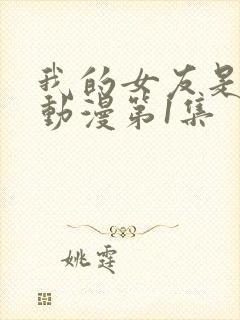 我的女友是
動漫第1集
姚霆